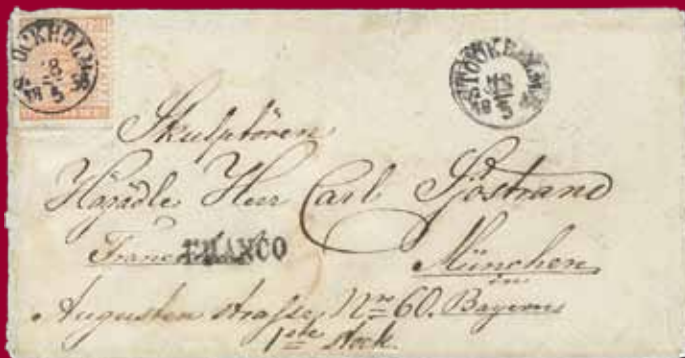 STOCKHOLM
18 5
STOCKHOLM
18 5
Skulptören
Högädle Herr Carl Sjöstrand
FRANCO
München
in
Augusten strasse Nro 60. Bayern
1ste stock.